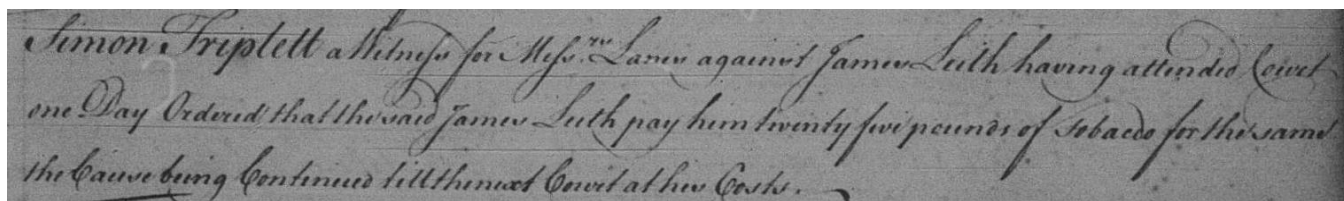 Simon Triplett a Witness for Mess.rs Lanes against James Leith having attended Court
one Day Ordered that the said James Leith pay him twenty five pounds of Tobacco for the same
the Cause being Continued till the next Court at his Costs.